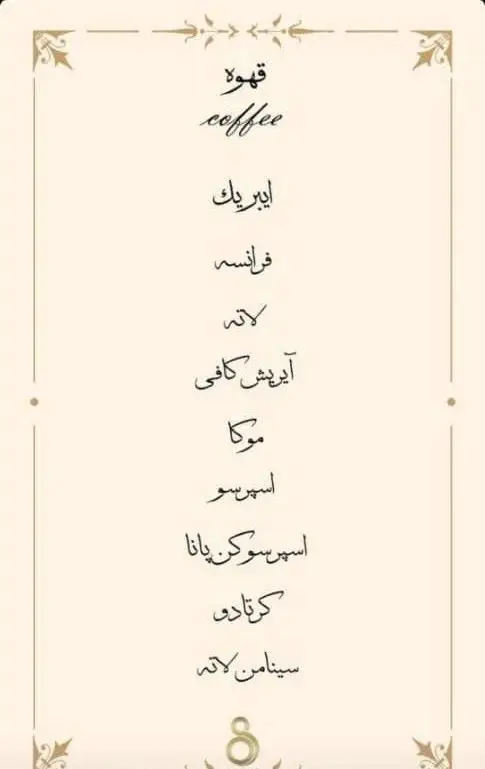 قهوه
coffee
ایبریك
فرانسه
لاته
آیریش کافی
موکا
اسپرسو
اسپرسو کن پانا
کرتادو
سینامن لاته